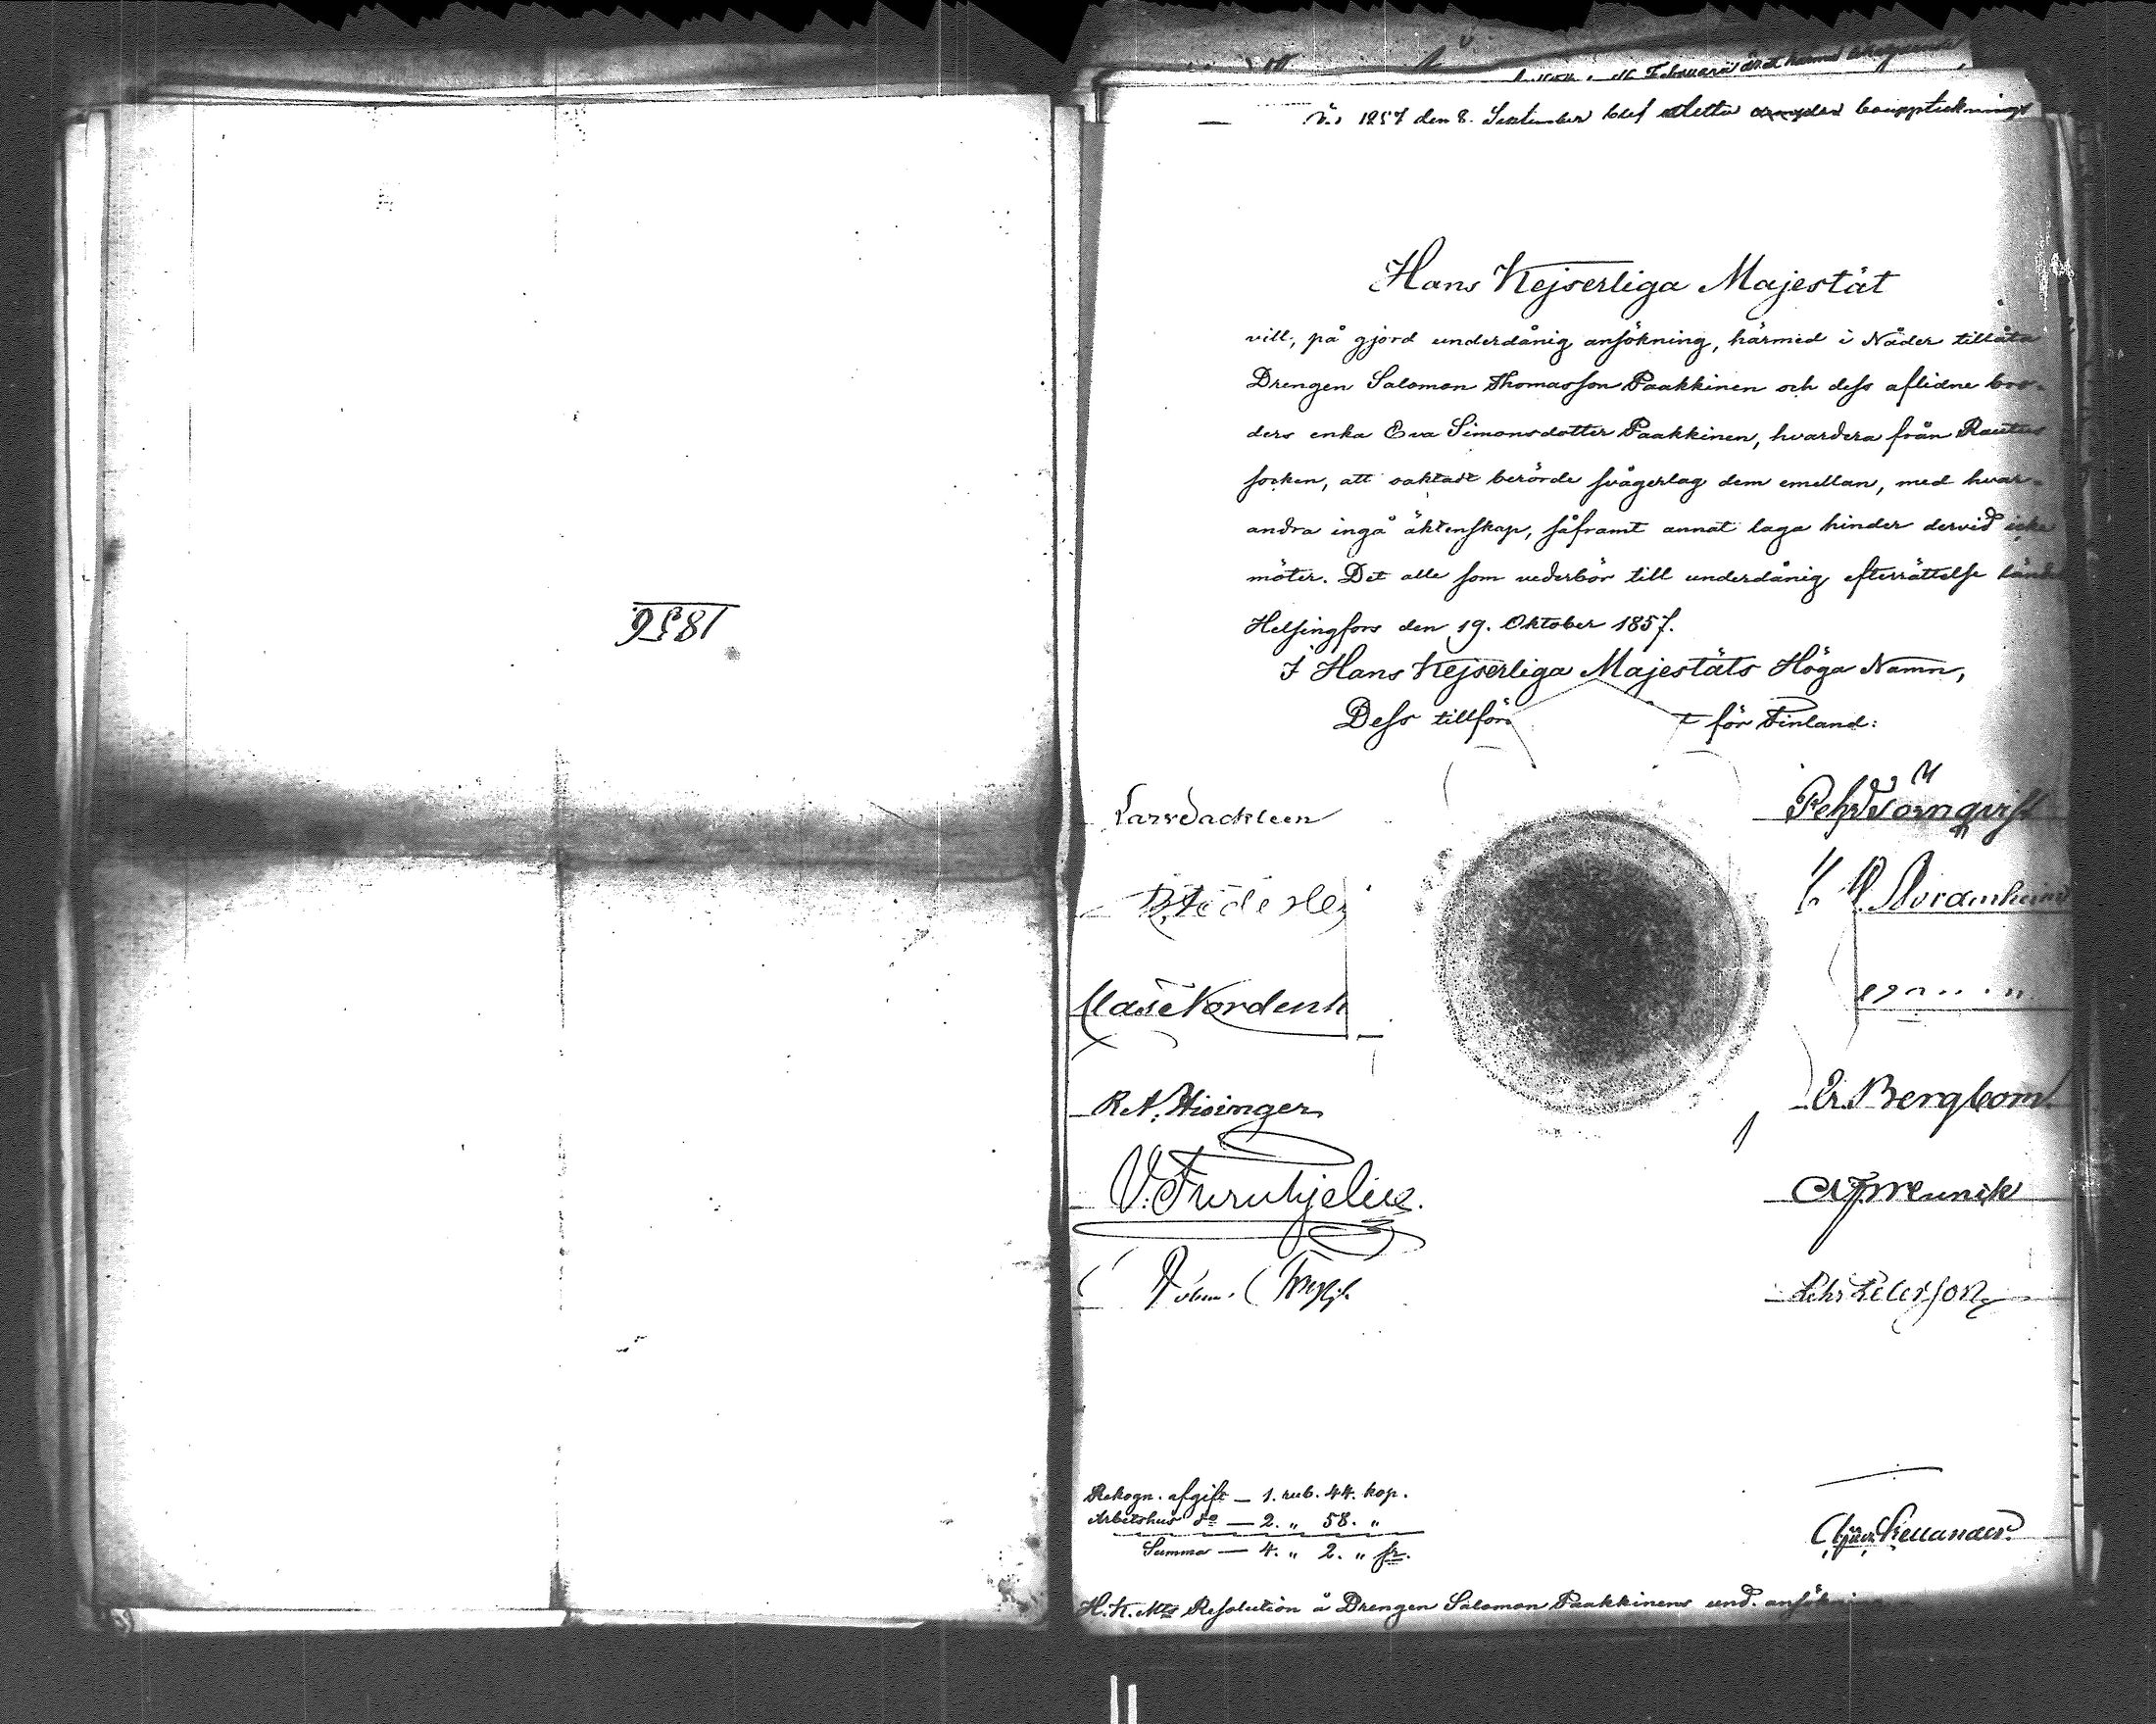 1856.
Februari
1857 den 8. September blef detta
Hans Kejserliga Majestät
vill, på gjord underdånig ansökning, härmed i Nåder tillåta
Drengen Salomon Thomasson Paakkinen och dess aflidne bro-
ders enka Eva Simonsdotter Paakkinen, hvardera från Rautus
socken, att oaktadt berörde svågerlag dem emellan, med hvar-
andra ingå äktenskap, såframt annat laga hinder dervid icke
möter. Det alle som vederbör till underdånig efterrättelse länder
Helsingfors den 19. Oktober 1857.
I Hans Kejserliga Majestäts Höga Namn,
Dess tillför för Finland:
Lars Sackleen
Pehr Törnqvist
Clas Nordenh
R. A. Hisinger
Bergbom
V. Furuhjelm.
Pehr Peterson
Rekogn. afgift — 1. rub. 44. kop.
Arbetshus do — 2. " 58. "
Summa — 4. " 2. " sr.
H. K. Mts Resolution å Drengen Salomon Paakkinens und. ansökning